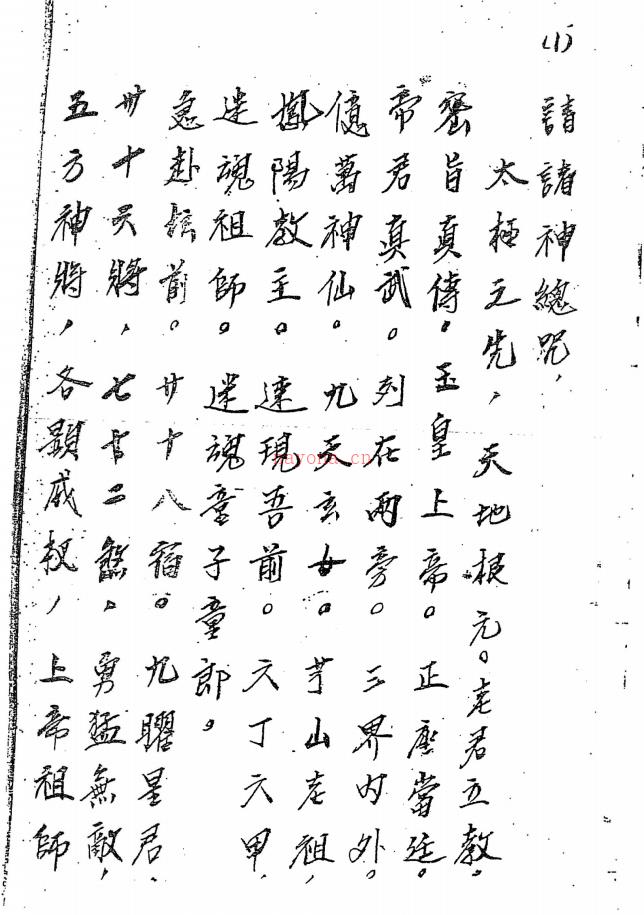 (1)
請諸神總咒,
太極之先,天地根元。老君立教。
密旨真傳。玉皇上帝。正座當廷。
帝君真武。列在兩旁。三界内外。
億萬神仙。九天玄女。芧山老祖,
鳳陽教主。速現吾前。六丁六甲,
迷魂祖師。迷魂童子童郎。
急赴坛前。廿十八宿。九曜星君、
卅十將,七十二煞。勇猛無敵,
五方神將,各顯威权,上帝祖師
hayona.cn